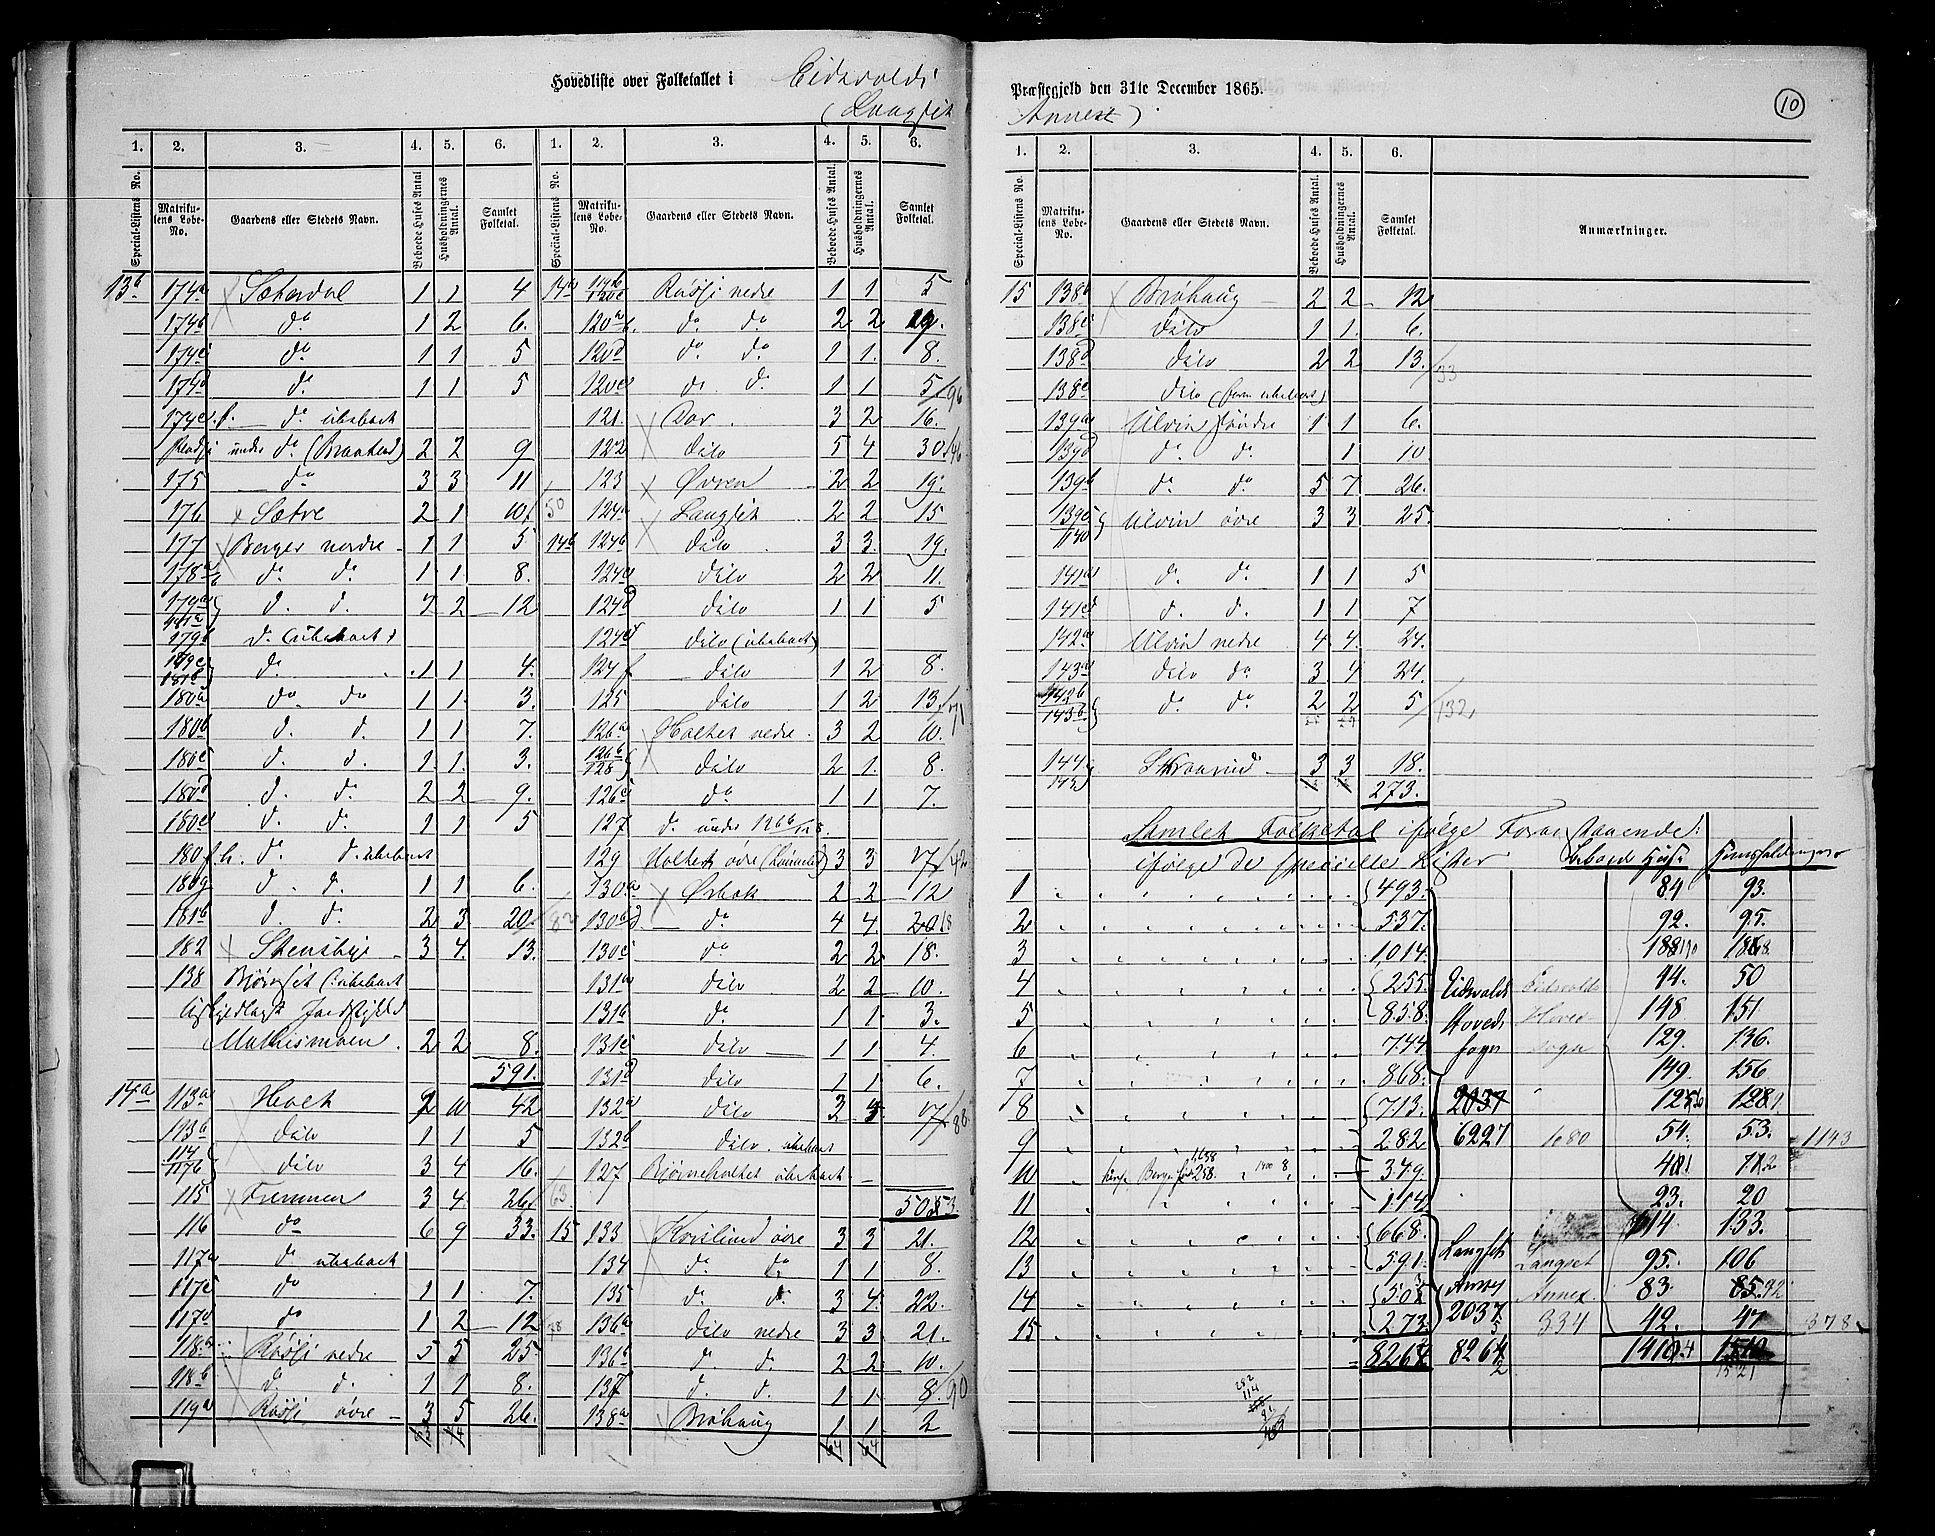 Hovedliste over Folketallet i Eidsvolds
(Langset
1. 2. 3. 4. 5. 6. 1. 2. 3. 4. 5. 6.
Special-Listens No. Matrikulens Løbe-No. Gaardens eller Stedets Navn. Beboede Huses Antal Husholdningernes Antal. Samlet Folketal. Special-Listens No. Matrikulens Løbe-No. Gaardens eller Stedets Navn. Beboede Huses Antal. Husholdningernes Antal. Samlet Folketal.
13b 174a Sæterdal 1 1 4
174b do 1 2 6.
174c do 1 1 5
174d do 1 1 5
174e. f. do ubeboet
Plads under do (Braatend) 2 2 9
175 do 3 3 11
176 Sætre 2 1 10 /50
177 Berger nordre 1 1 5
178a b do do 1 1 8.
179a d. d. 2 12
179b do (ubeboet)
179c 181b do 1 1 4.
180a do do 1 1 3.
180b d. d. 1 1 7.
180c d. d. 1. 1. 3.
180d d. d. 2 2 9.
180e d. do 1 1 5
180f h. do d. ubeboet
180g d. d. 1 1 6.
181b d. do 2 3 20. /82
182 Stensbye 3 4. 13.
138 Bjørnset (ubeboet
Jordstykke
Mathismoen 2 2 8.
591.
14a 113a Hoel 10 42
113b dito 1 1 5
114 117b dito 3 4 16.
115 Fremmen 3 4. 26. /63
116 do 6 9 33.
117a do ubeboet
117c do 1 1 7.
117d do 1 2 12 /78
118a Røise nedre 5 5 25.
118b d. d. 1 1 8.
119a Røise øvre 3 5 26.
14a 120c Røise nedre 1 1 5
120a b. do do 2 2 19.
120d do do 1 1. 8.
120e do do 1 1 5 /96
121. Dor 3 2 16.
122 dito 5 4 30 /46
123 Øvren 2 2 19.
124a Langset 2 2 15
14b 124b dito 3 3. 19.
124c dito 2 2 11.
124d dito 1 1 5
124e dito (ubeboet)
124f dito 1 2 8.
125 dito 1 2 13. /71
126a Holtet nedre 3 2 10.
126b 128 dito 2 1. 8.
126c do 1 1 7.
127 do under 126b/128
129 Holtet øvre 3 3 17 /42
130a Ørbæk 2 2 12
130b d do 4 4 20 18
130c do 2 2 18.
131a dito 2 2 10.
131b do 1 1. 3.
131c dito 1 1 4.
131d dito 1 1 6.
132a dito 17 /88
132b dito ubeboet
127 Bjørneholtet ubeboet
503.
15 133 Kvislund øvre 3 3 21.
134 do do 1 1 8.
135 do do 3 4. 22.
136a dito nedre 3 3. 21.
136b do do 2 2 10.
137 d. d. 1 1 8. /90
138a Brøhaug 1 1 2
64 64
Præstegjeld den 31te December 1865.
Annex)
10
1. 2. 3. 4. 5. 6.
Special-Listens No. Matrikulens Løbe-No. Gaardens eller Stedets Navn. Beboede Huses Antal. Husholdningernes Antal. Samlet Folketal. Anmærkninger.
15 138b Brøhaug 2 2 12
138c dito 1 1. 6.
138d dito 2 2 13. /33
138e dito (ubeboet)
139a Ulvin søndre 1 1 6.
139d do do 1 10.
139b do do 5 7 26.
139c 140 Ulvin øvre 3 3 25.
141a do do 1 1 5
141d d. d. 1 1 7
142a Ulvin nedre 4 4. 24.
143a dito do 3 4 24.
142b 143b do do 2 2 5 /132
144. 145 Skraarud 3 3 18.
273.
Samlet Folketal ifølge Foranstaaende:
ifølge de specielle Lister beboede Huse Huusholdninger
1 493. 84 93.
2 537. 92. 95.
3 1,014. 188
4 255. 44. 50
5 858. 148 151
6 744. 129. 136.
7 868. 149. 156
8 713. 2037
9 282. 6227 1080 54. 53. 1143
10 349.
11 114. 23. 20
12 668. 114 133.
13 591. 95. 106
14 503 83. 85. 92
15 273. 2037 334 42. 47 378
Eidsvolds Hovedsogn
Eidsvolds Hovedsogn
Langset Annex
Langset Annex
8264. 8264 1521